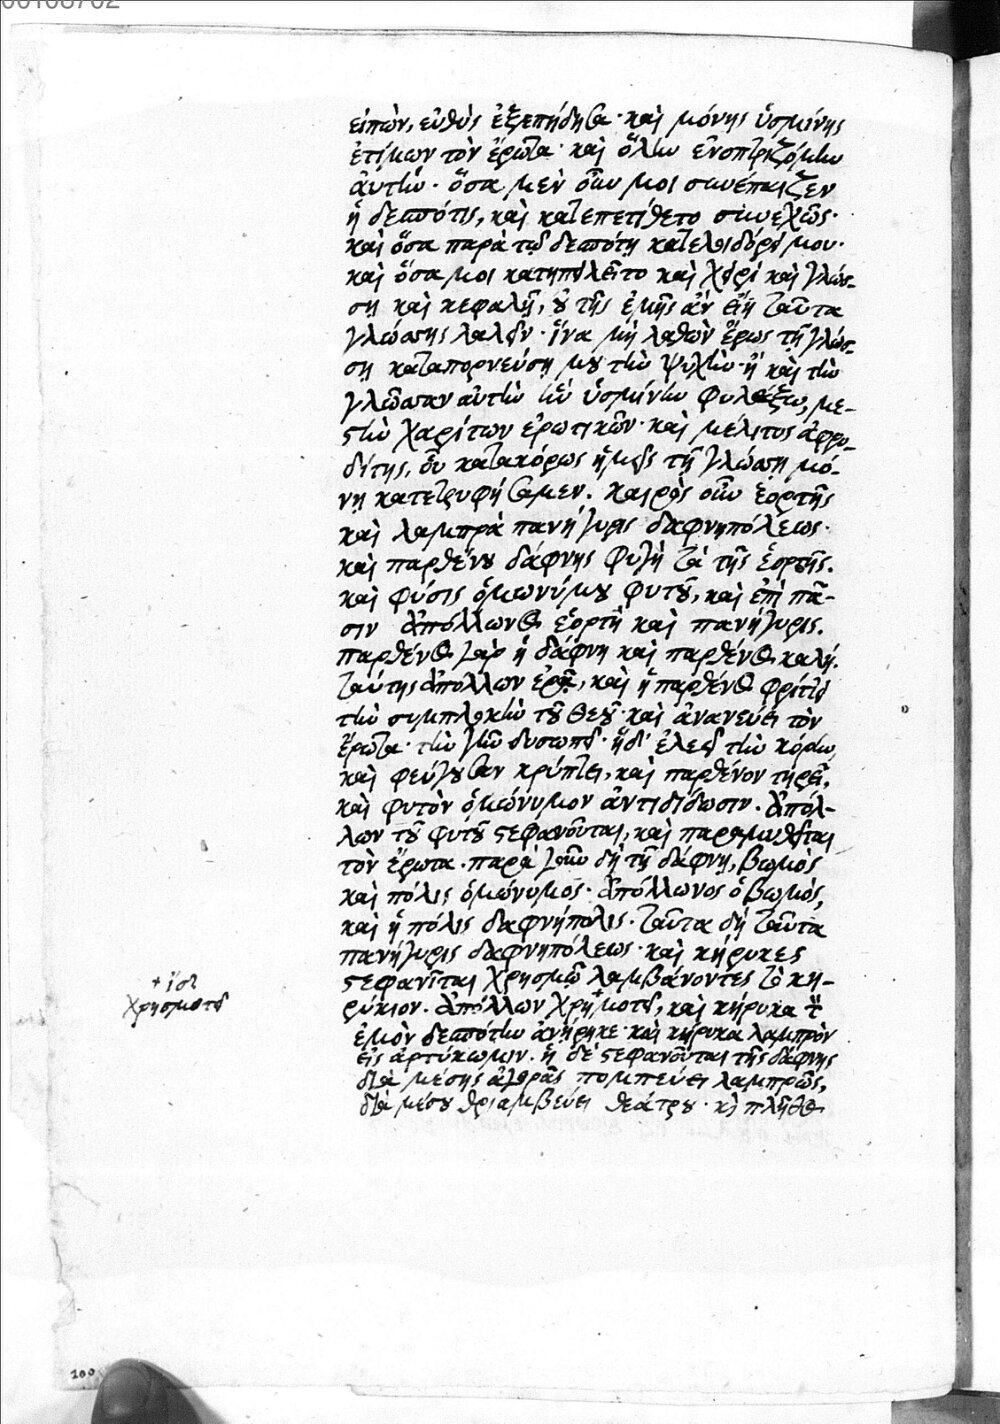 εἰπὼν, εὐθὺς ἐξεπήδησα· καὶ μόνης ὑσμίνης
ἐτίμων τὸν ἔρωτα· καὶ ὅλην ἐνοπτριζόμην
αὐτήν. ὅσα μὲν οὖν μοι συνέπαιζεν
ἡ δεσπότις, καὶ κατεπετίθετο συνεχῶς·
καὶ ὅσα παρὰ τῷ δεσπότῃ κατελοιδόρει μου·
καὶ ὅσα μοι κατηπειλεῖτο καὶ χειρὶ καὶ γλώσ-
σῃ καὶ κεφαλῇ, οὐ τῆς ἐμῆς ἂν εἴη ταῦτα
γλώσσης λαλεῖν· ἵνα μὴ λαθὼν ἔρως τῇ γλώσ-
σῃ καταπορνεύσῃ μου τὴν ψυχὴν· ἢ καὶ τὴν
γλῶσσαν αὐτὴν ὑσμίνην φυλάξω, με-
στὴν χαρίτων ἐρωτικῶν· καὶ μέλιτος ἀφρο-
δίτης, οὗ κατακόρως ἡμεῖς τῇ γλώσσῃ μό-
νῃ κατετρυφήσαμεν. καιρὸς οὖν ἑορτῆς
καὶ λαμπρὰ πανήγυρις δαφνηπόλεως·
καὶ παρθένου δάφνης φυγὴ τὰ τῆς ἑορτῆς.
καὶ φύσις ὁμωνύμου φυτοῦ, καὶ ἐπὶ πᾶ-
σιν ἀπόλλωνος ἑορτὴ καὶ πανήγυρις.
παρθένος γὰρ ἡ δάφνη καὶ παρθένος καλή.
ταύτης ἀπόλλων ἐρᾷ, καὶ ἡ παρθένος φρίττει
τὴν συμπλοκὴν τοῦ θεοῦ· καὶ ἀνανεύει τὸν
ἔρωτα· τὴν γῆν δυσωπεῖ· ἡ δ' ἐλεεῖ τὴν κόρην,
καὶ φεύγουσαν κρύπτει, καὶ παρθένον τηρεῖ.
καὶ φυτὸν ὁμώνυμον ἀντιδίδωσιν. ἀπόλ-
λων τοῦ φυτοῦ στεφανοῦται, καὶ παραμυθεῖται
τὸν ἔρωτα. παρὰ γοῦν δὴ τῇ δάφνῃ, βωμὸς
καὶ πόλις ὁμώνυμος· ἀπόλλωνος ὁ βωμὸς,
καὶ ἡ πόλις δαφνήπολις. ταῦτα δὴ ταῦτα
πανήγυρις δαφνηπόλεως· καὶ κήρυκες
στεφανῖται χρησμῷ λαμβάνοντες τὸ κη-
ρύκιον. ἀπόλλων χρημοτεῖ, καὶ κήρυκα τὸν
ἐμὸν δεσπότην ἀνῄρηκε· καὶ κήρυκα λαμπρὸν
εἰς ἀρτύκωμιν. ἡ δὲ στεφανοῦται τῆς δάφνης
διὰ μέσης ἀγορᾶς πομπεύει λαμπρῶς,
διὰ μέσου θριαμβεύει θεάτρου· καὶ πλῆθος
+ ἴσ
χρησμοτεῖ
200